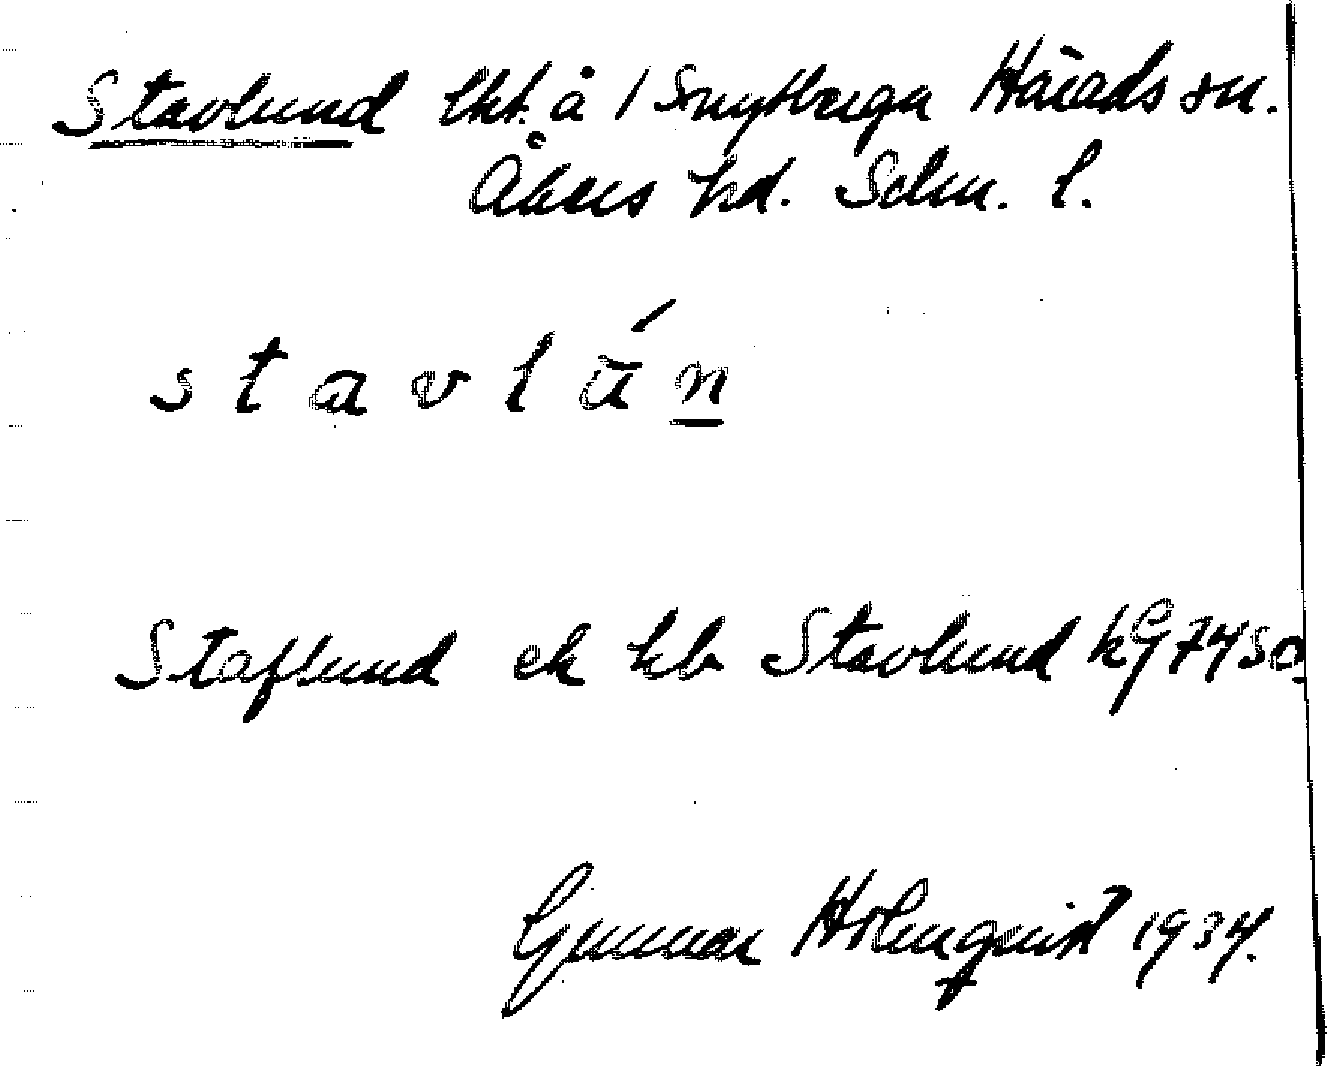 Stavlund lht. å 1 Snytberga Härads sn.
Åkers hd. Sdm. l.
stavlún
Staflund ek hb Stavlund kg 74 so
Gunnar Holmquist 1934.